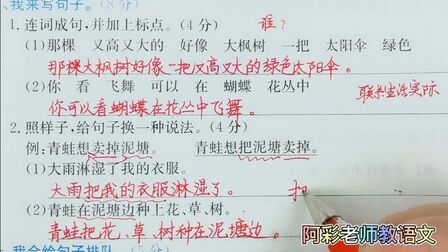 我来写句子。(8分)
1. 连词成句，并加上标点。(4分) 谁？
(1)那棵 又高又大的 好像 大枫树 一把 太阳伞 绿色
那棵大枫树好像一把又高又大的绿色太阳伞。
(2)你 看 飞舞 可以 在 蝴蝶 花丛中 联系生活实际
你可以看蝴蝶在花丛中飞舞。
2. 照样子，给句子换一种说法。(4分)
例：青蛙想卖掉泥塘。 青蛙想把泥塘卖掉。
(1)大雨淋湿了我的衣服。
大雨把我的衣服淋湿了。
(2)青蛙在泥塘边种上花、草、树。
青蛙把花、草、树种在泥塘边。
阿彩老师教语文